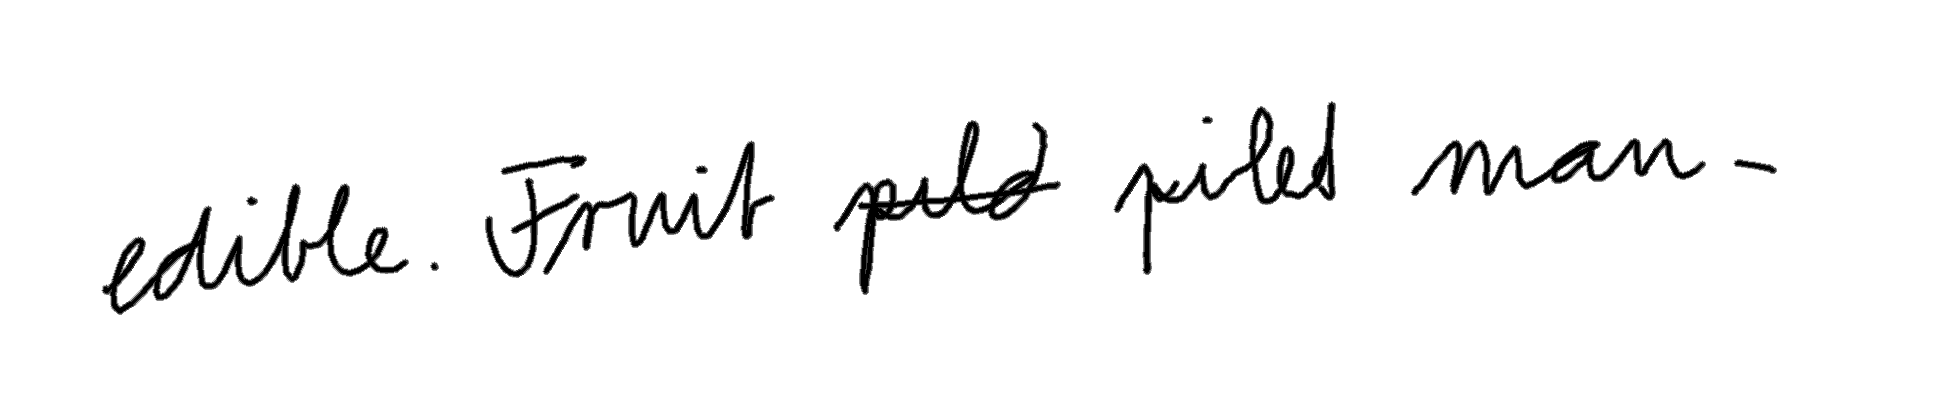 edible. Fruit piled man-